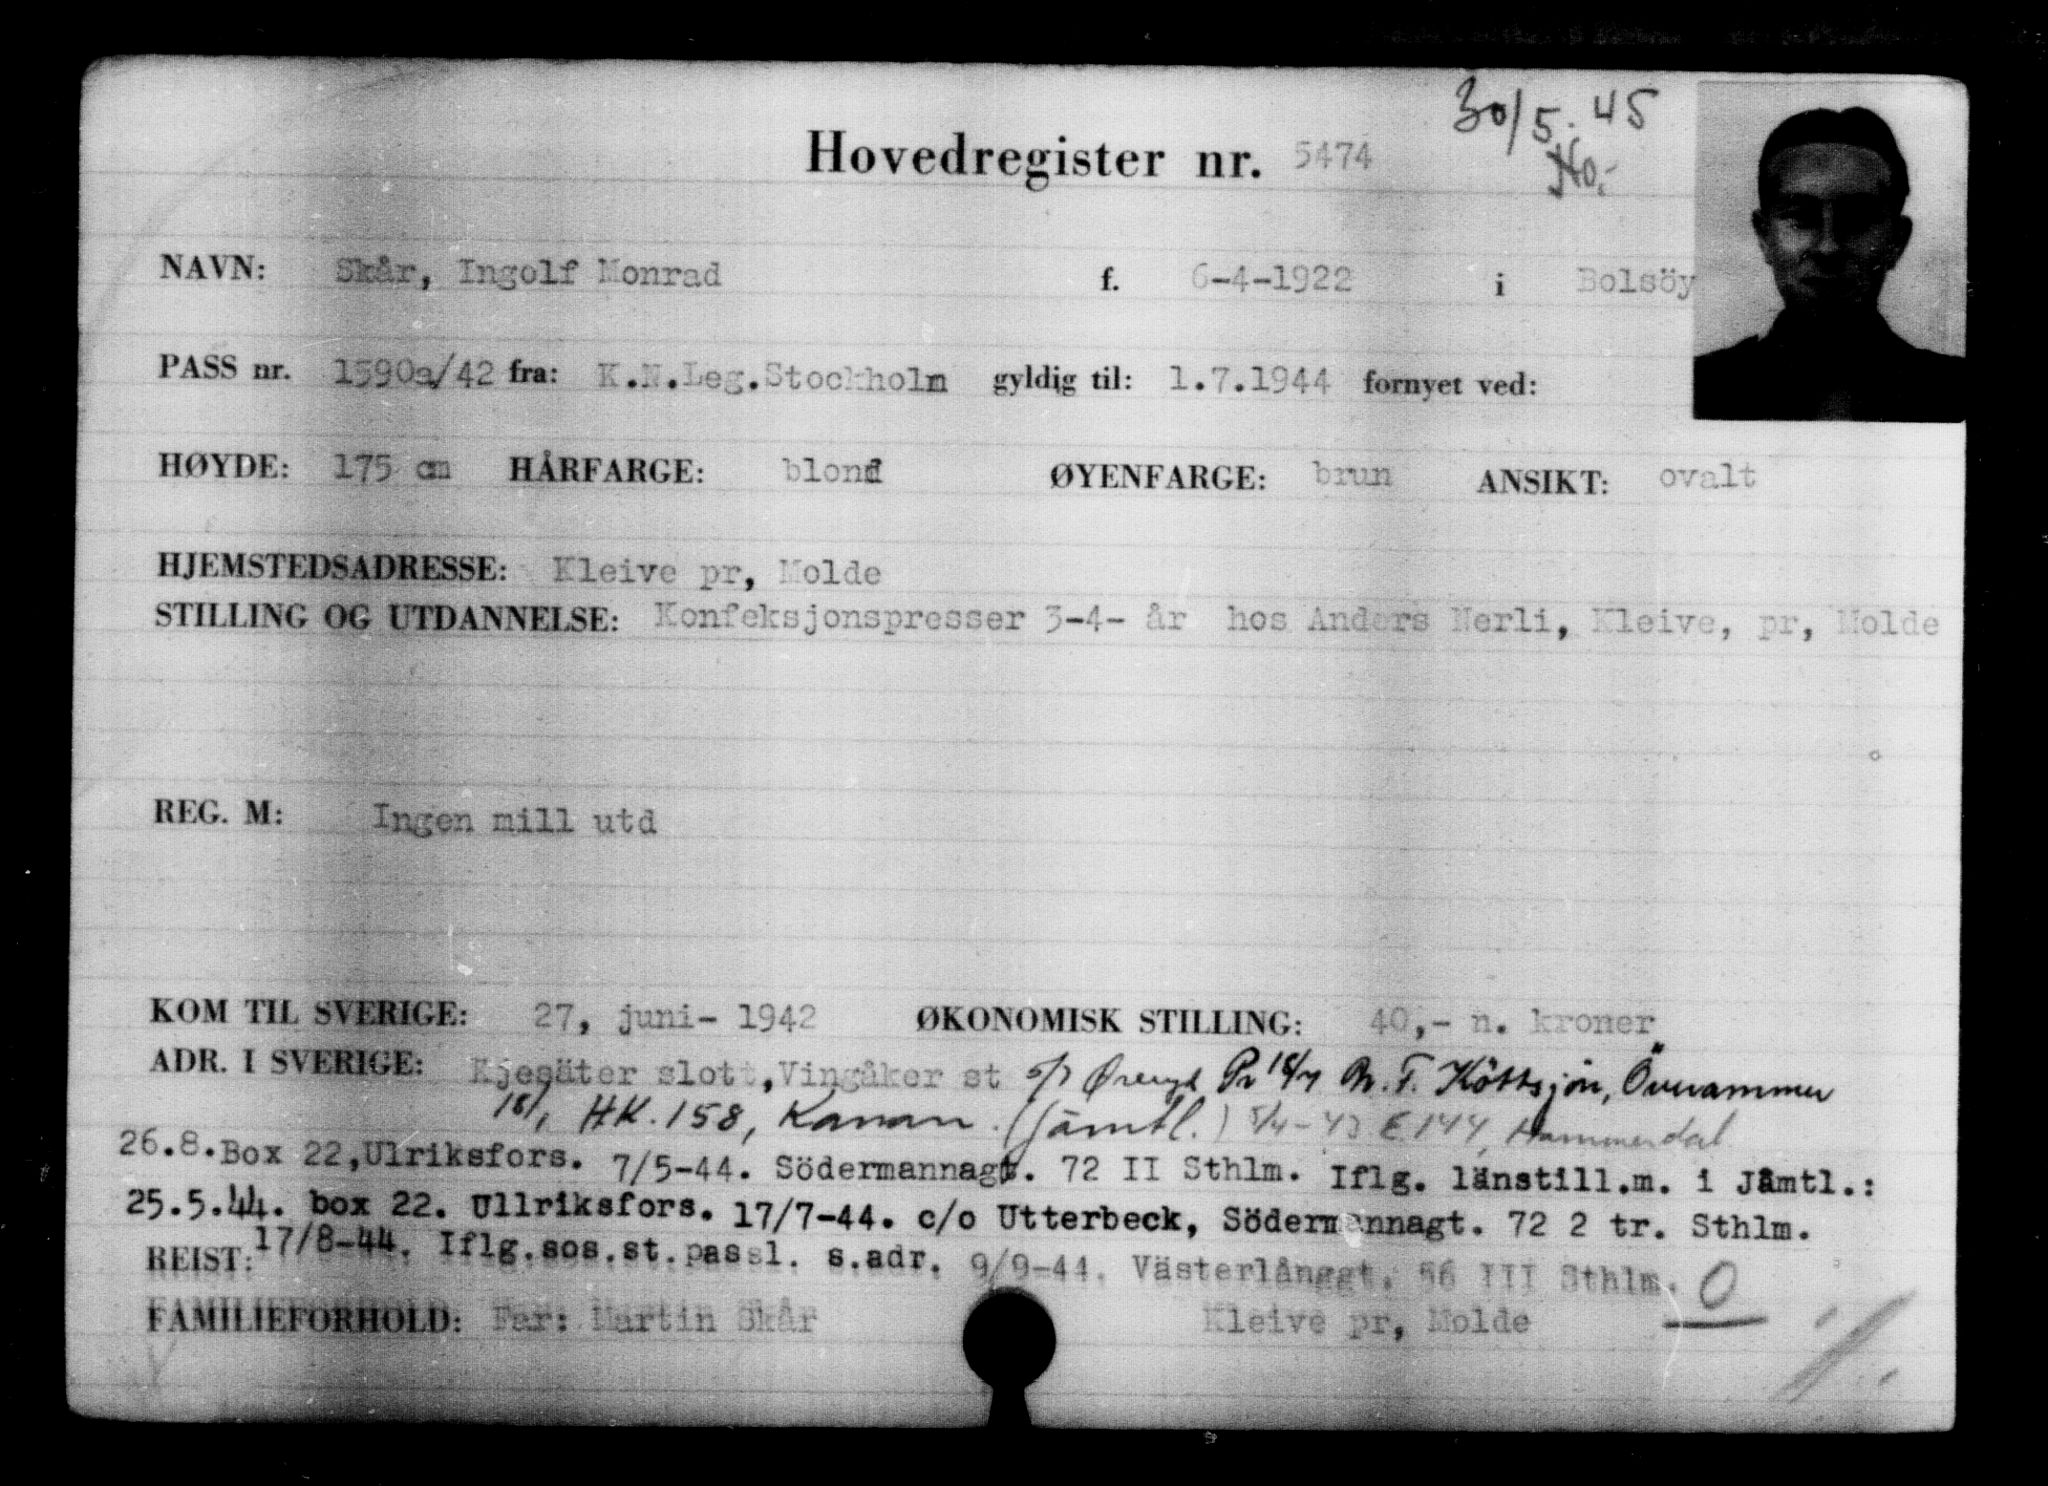 30/5.45
Hovedregister nr. 5474
No.-
NAVN: Skår, Ingolf Monrad f. 6-4-1922 i Bolsöy
PASS nr. 1590a/42 fra: K.N.Leg.Stockholm gyldig til: 1.7.1944 fornyet ved:
HØYDE: 175 cm HÅRFARGE: blond ØYENFARGE: brun ANSIKT: ovalt
HJEMSTEDSADRESSE: Kleive pr, Molde
STILLING OG UTDANNELSE: Konfeksjonspresser 3-4- år hos Anders Nerli, Kleive, pr, Molde
REG. M: Ingen mill utd
KOM TIL SVERIGE: 27, juni- 1942 ØKONOMISK STILLING: 40,- n. kroner
ADR. I SVERIGE: Kjesäter slott,Vingåker st Köttsjön,
HK. 158, (Jämtl.) 5/4-43 E 144, Hammerdal
26.8.Box 22,Ulriksfors. 7/5-44. Södermannagt. 72 II Sthlm. Iflg. länstill.m. i Jämtl.:
25.5.44. box 22. Ullriksfors. 17/7-44. c/o Utterbeck, Södermannagt. 72 2 tr. Sthlm.
REIST: 17/8-44. Iflg.sos.st.passl. s.adr. 9/9-44. Västerlånggt. 56 III Sthlm. 0
FAMILIEFORHOLD: Far: Martin Skår Kleive pr, Molde